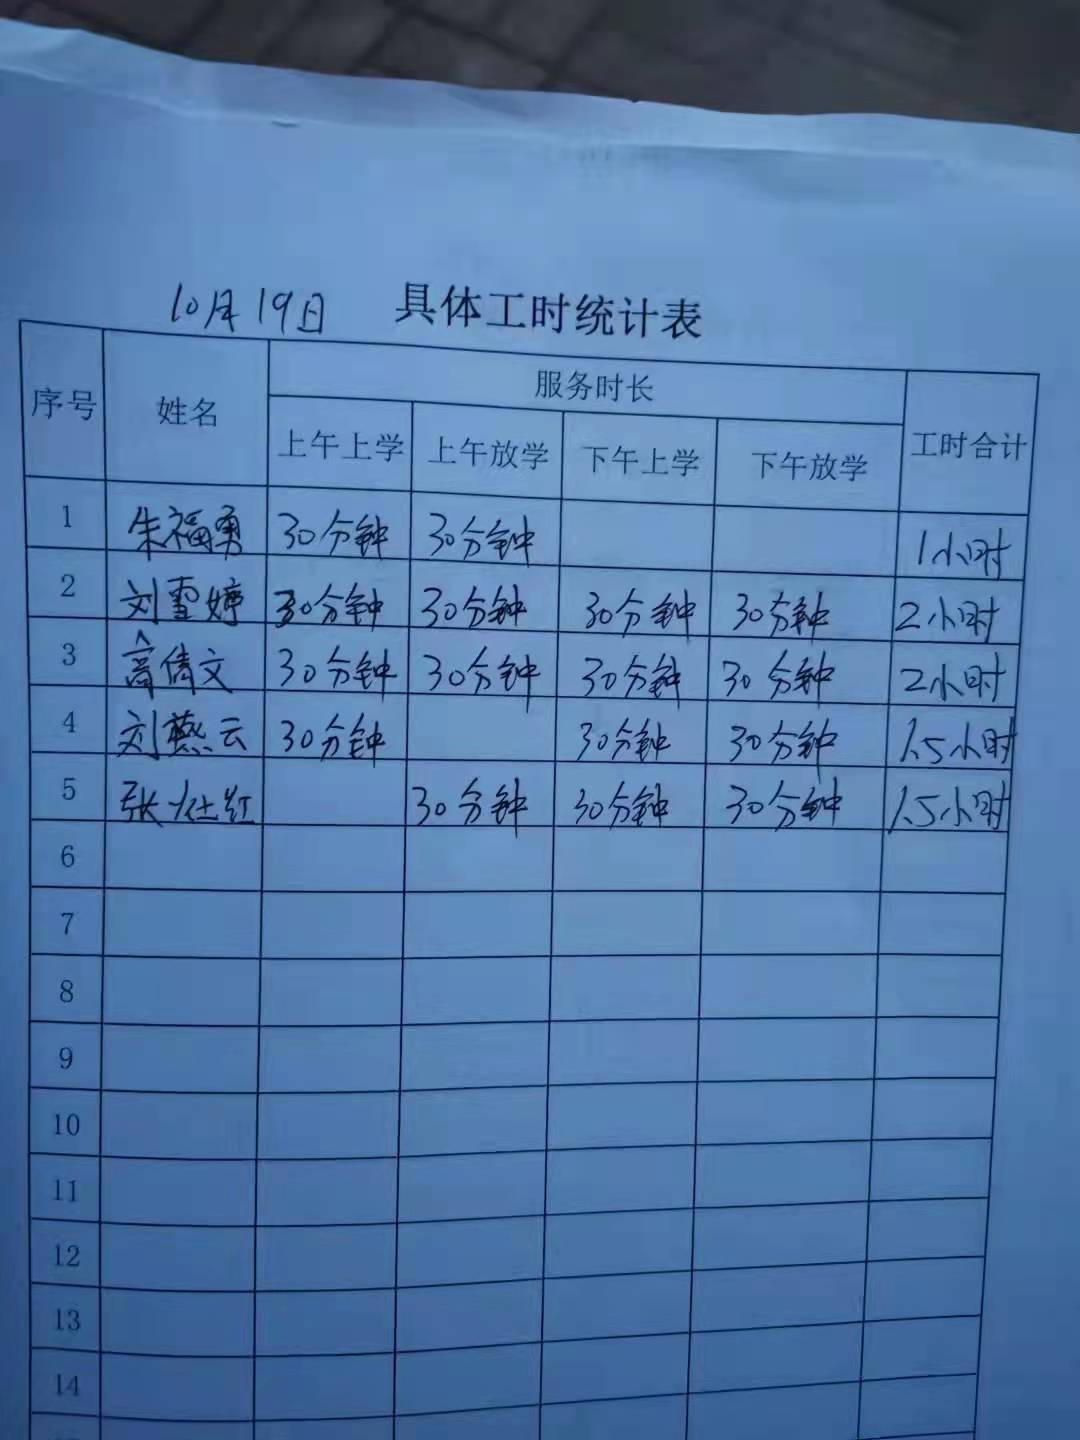 10月19日 具体工时统计表
序号 姓名 服务时长 工时合计
上午上学 上午放学 下午上学 下午放学
1 朱福勇 30分钟 30分钟 1小时
2 刘雪婷 30分钟 30分钟 30分钟 30分钟 2小时
3 高倩文 30分钟 30分钟 30分钟 30分钟 2小时
4 刘燕云 30分钟 30分钟 30分钟 1.5小时
5 张灶红 30分钟 30分钟 30分钟 1.5小时
6
7
8
9
10
11
12
13
14